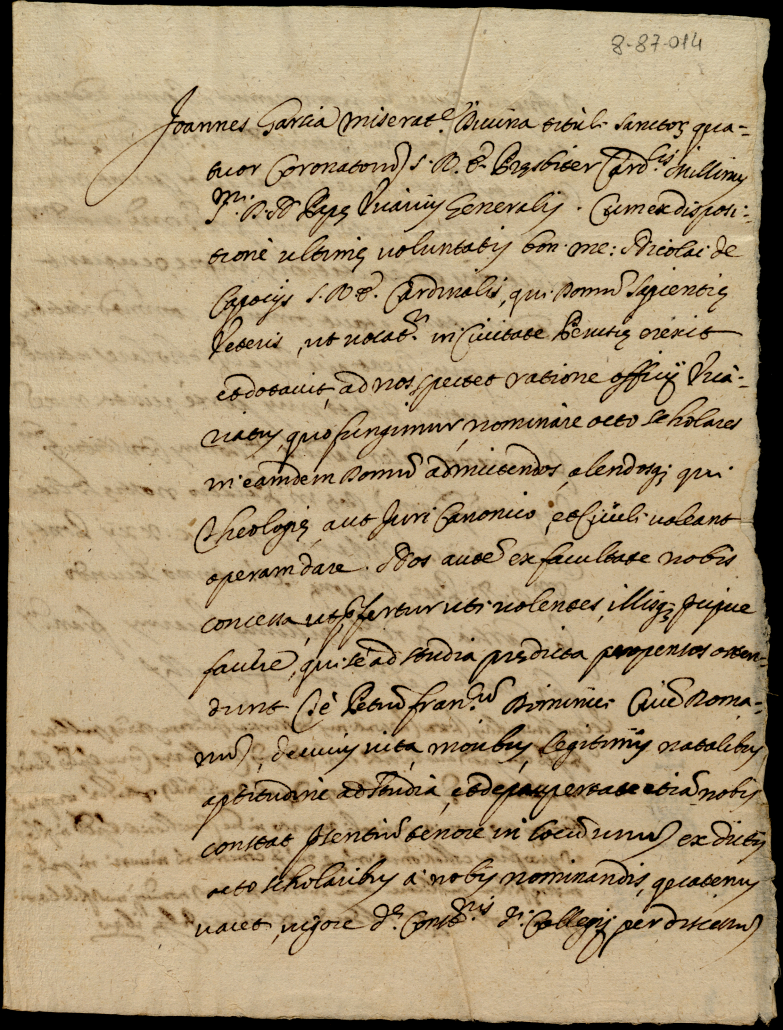 8-87-014
Joannes Garsia miserat.e Divina tituli Sanctoꝝ qua-
tuor Coronatorũ S. R. E. Presbiter Card.lis Illustrmi
D. N. Papę Vicarius Generalis. Cum ex disposi-
tione ultimę voluntatis bon: me: Nicolai de
Capocijs S. R. E. Cardinalis, qui Domũ Sapientię
Veteris, ut vocat.r in Civitate Perusię erexit
et dotavit, ad nos spectet ratione officij Vica-
riatus, quo fungimur, nominare octo scholares
in eamdem Domũ admittendos, alendosq; qui
Theologię aut Juri Canonico, et Civili voleant
operam dare. Nos autẽ ex facultate nobis
concessa, ut p̃fertur uti volentes, illisq;
favere, qui se ad studia prędicta propensos osten-
dunt Te Petrũ Fran.cũ Civẽ Roma-
nũ, de cuius vita, moribus, legitimis natalibus
aptitudine ad studia, et de paupertate etiã nobis
constat p̃sentiũ tenore in locũ unius ex dictis
octo scholaribus a nobis nominandis, quatenus
vacet, vigore d. Const.nis d.i Collegij per discessũ